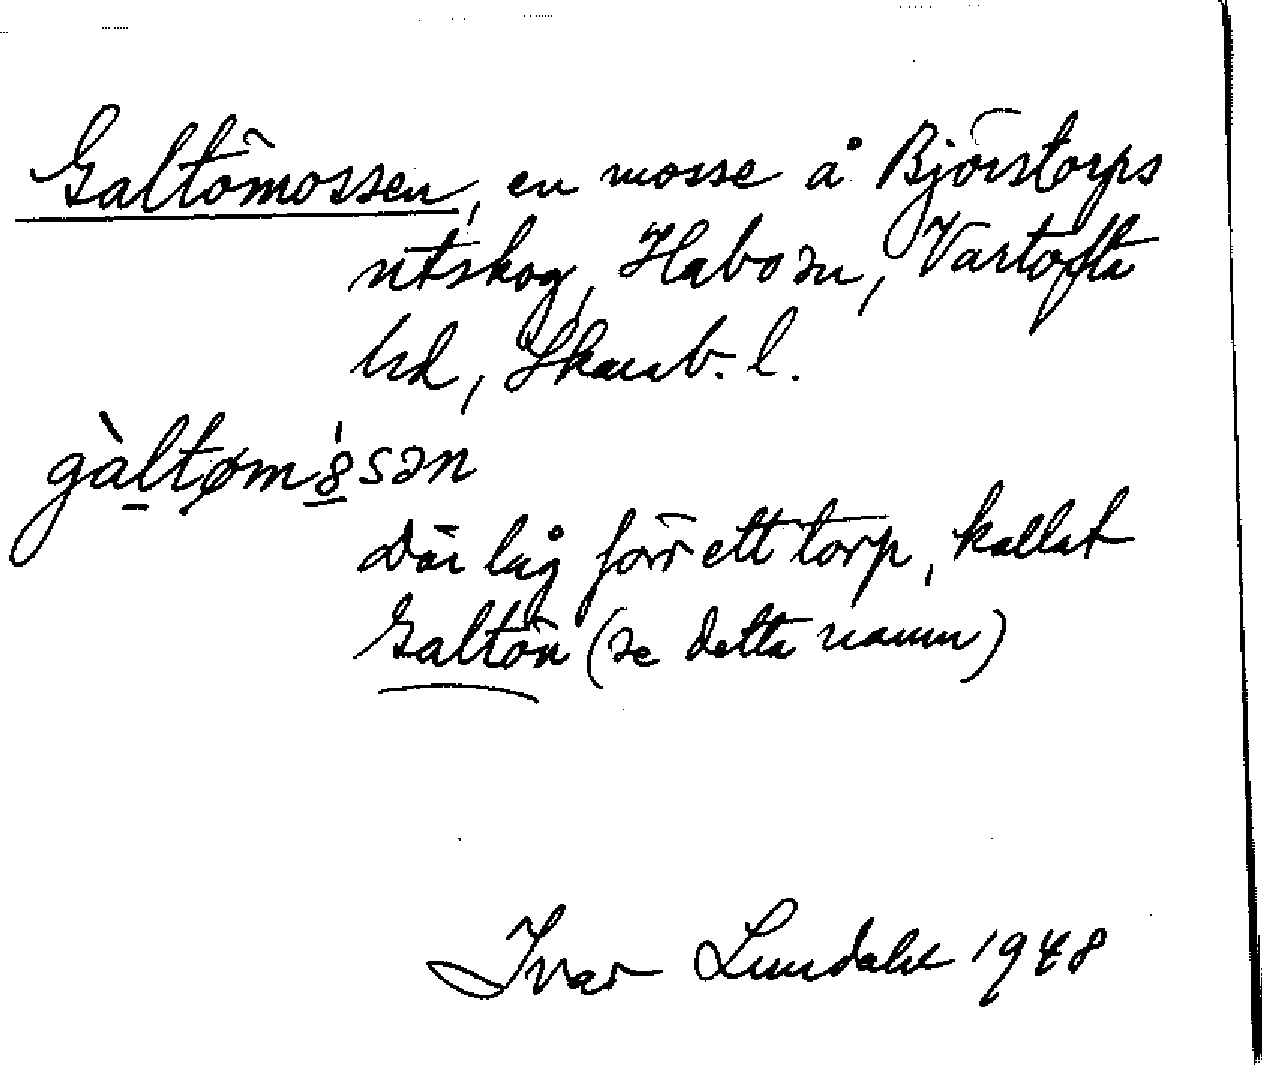 Galtömossen, en mosse å Björstorps
utskog, Habo sn, Vartofta
hd, Skarab. l.
gàltømo̍sən
Där låg förr ett torp, kallat
Galtön (se detta namn)
Ivar Lundahl 1948